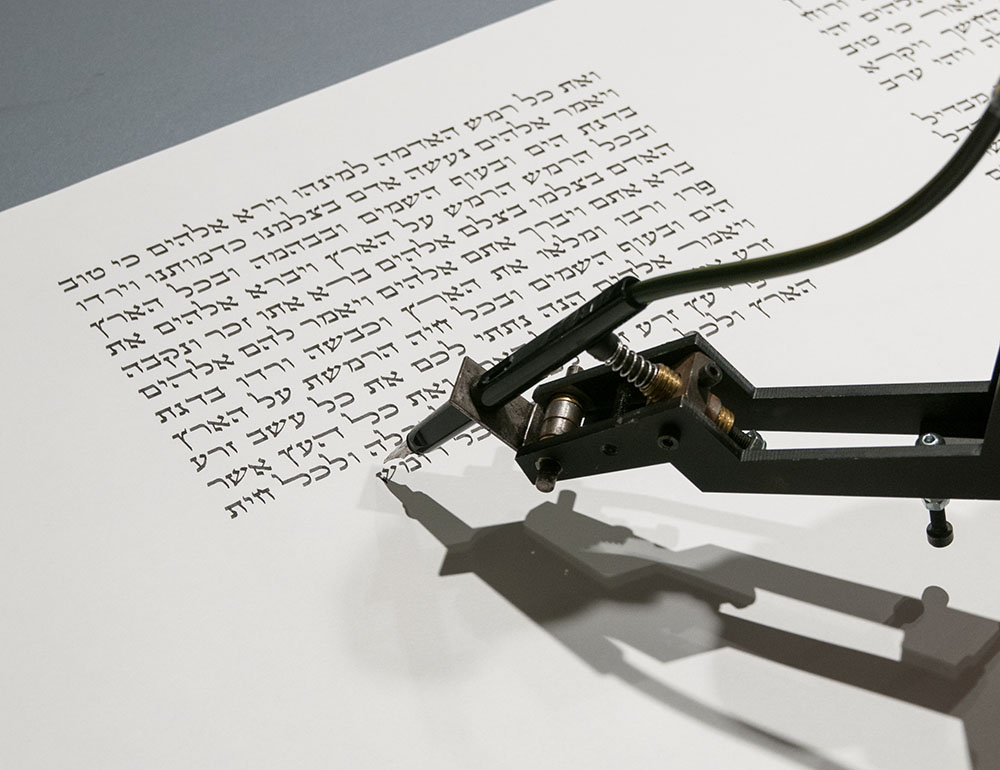 ואת כל רמש האדמה למינהו וירא אלהים כי טוב
ויאמר אלהים נעשה אדם בצלמנו כדמותנו וירדו
בדגת הים ובעוף השמים ובבהמה ובכל הארץ
ובכל הרמש הרמש על הארץ ויברא אלהים את
האדם בצלמו בצלם אלהים ברא אתו זכר ונקבה
ברא אתם ויברך אתם אלהים ויאמר להם אלהים
פרו ורבו ומלאו את הארץ וכבשה ורדו בדגת
הים ובעוף השמים ובכל חיה הרמשת על הארץ
ויאמר אלהים הנה נתתי לכם את כל עשב זרע
זרע ואת כל העץ אשר
עץ זרע ולכל חית
הארץ ולכל רומש
כי טוב
החשך ויקרא
ויהי ערב
מבדיל